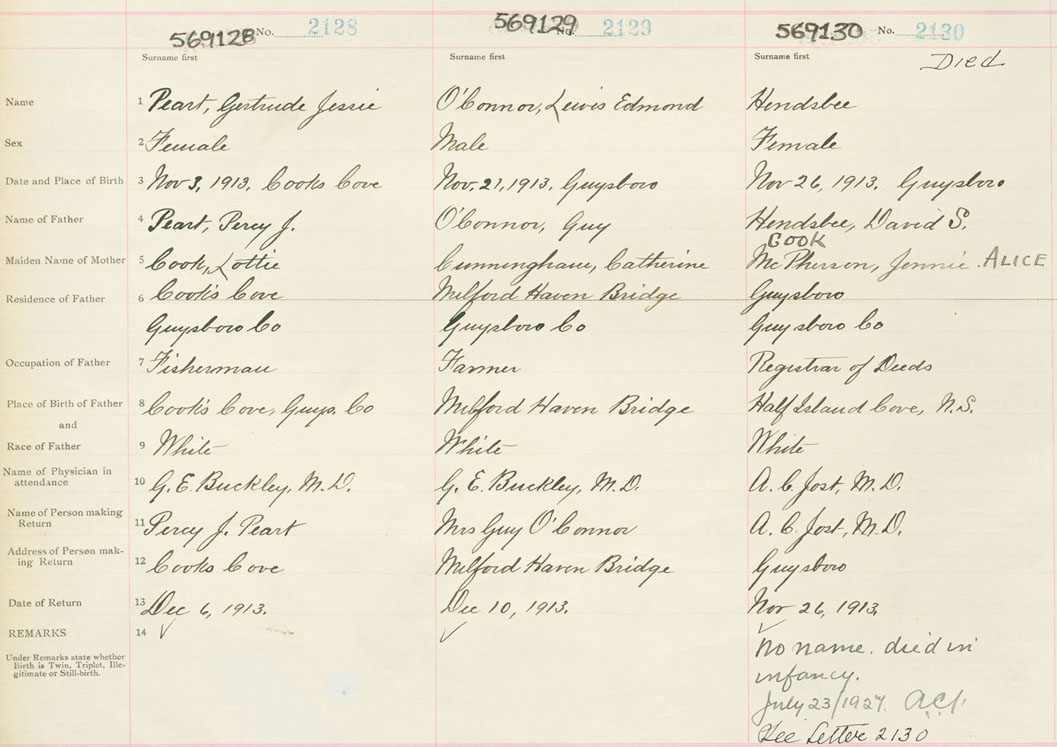 569128 No. 2128 569129 No 2129 569130 No. 2130
Surname first Surname first Surname first Died
Name 1 Peart, Gertrude Jessie O'Connor, Lewis Edmond Hendsbee
Sex 2 Female Male Female
Date and Place of Birth 3 Nov 3, 1913. Cooks Cove Nov. 21, 1913. Guysboro Nov 26, 1913. Guysboro
Name of Father 4 Peart, Percy J. O'Connor, Guy Hendsbee, David S.
Cook
Maiden Name of Mother 5 Cook, Lottie Cunningham, Catherine McPherson, Jennie. ALICE
Residence of Father 6 Cook's Cove Milford Haven Bridge Guysboro
Guysboro Co Guysboro Co Guysboro Co
Occupation of Father 7 Fisherman Farmer Registrar of Deeds
Place of Birth of Father 8 Cook's Cove, Guys. Co Milford Haven Bridge Half Island Cove, N.S.
and
Race of Father 9 White White White
Name of Physician in
attendance 10 G. E. Buckley, M.D. G. E. Buckley, M.D. A. C. Jost, M.D.
Name of Person making
Return 11 Percy J. Peart Mrs Guy O'Connor A. C. Jost, M.D.
Address of Person mak-
ing Return 12 Cooks Cove Milford Haven Bridge Guysboro
Date of Return 13 Dec 6, 1913. Dec 10, 1913. Nov 26, 1913
REMARKS 14
Under Remarks state whether
Birth is Twin, Triplet, Ille-
gitimate or Still-birth.
No name. died in
infancy.
July 23/1927. ACJ.
See Letter 2130